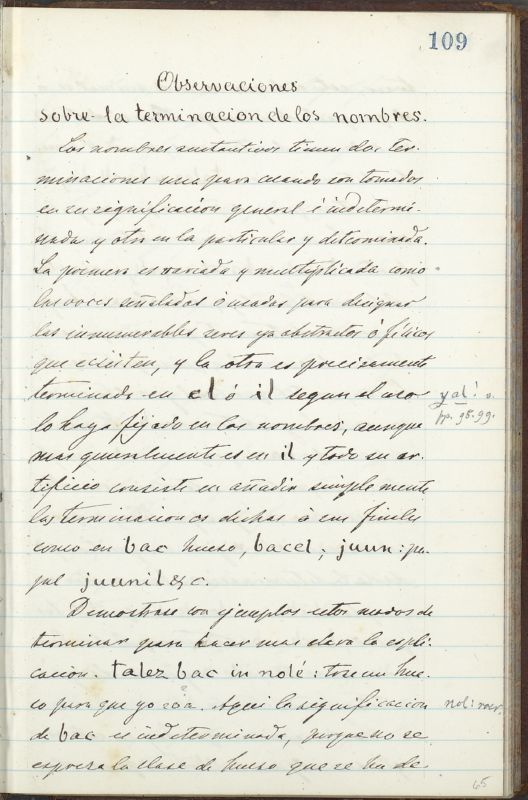 109
Observaciones
sobre la terminacion de los nombres.
Los nombres sustantivos tienen dos ter-
minaciones una para cuando son tomados
en su significacion general é indetermi-
nada y otra en la particular y determinada.
La primera es variada y multiplicada como
las voces señaladas ó usadas para designar
los innumerables seres ya abstractos ó fisicos
que ecsisten, y la otra es precisamente
terminada en el ó il segun el uso
y al!
lo haya fijado en los nombres, aunque
pp. 98-99.
mas generalmente es en il y todo su ar-
tificio consiste en añadir simplemente
las terminaciones dichas á sus finales
como en bac hueso, bacel; juun: pa-
pel juunil &c.
Demostrase con ejemplos estos modos de
terminar para hacer mas clara la espli-
cacion. talez bac in nolé: trae un hue-
so para que yo roa. Aqui la significacion
nol: roer.
de bac es indeterminada, porque no se
espresa la clase de hueso que se ha de
65